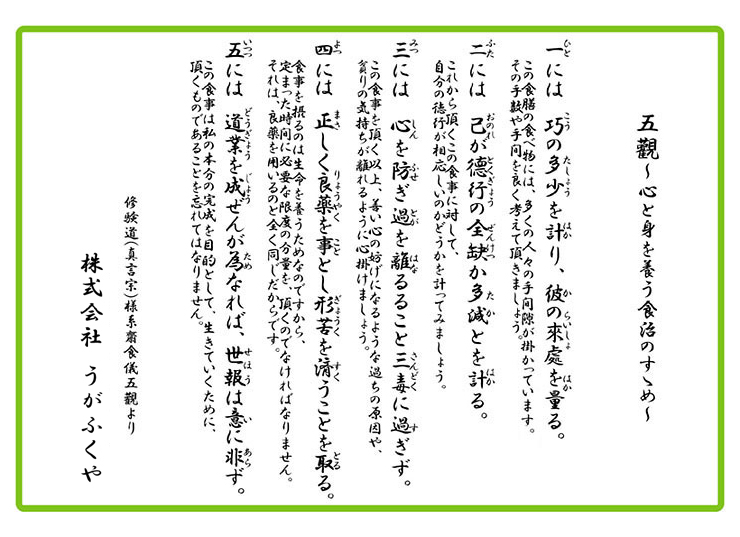 五觀～心と身を養う食治のすゝめ～
一には 巧の多少を計り、彼の來處を量る。
この食膳の食べ物には、多くの人々の手間隙が掛かっています。
その手数や手間を良く考えて頂きましょう。
二には 己が德行の全缺か多減とを計る。
これから頂くこの食事に対して、
自分の徳行が相応しいのかどうかを計ってみましょう。
三には 心を防ぎ過を離るること三毒に過ぎず。
この食事を頂く以上、善い心の妨げになるような過ちの原因や、
貪りの気持ちが離れるように心掛けましょう。
四には 正しく良薬を事とし形苦を済うことを取る。
食事を摂るのは生命を養うためなのですから、
定まった時間に必要な限度の分量を、頂くのでなければなりません。
それは、良薬を用いるのと全く同じだからです。
五には 道業を成ぜんが為なれば、世報は意に非ず。
この食事は私の本分の完成を目的として、生きていくために、
頂くものであることを忘れてはなりません。
修験道(真言宗)様系齋食儀五觀より
株式会社 うがふくや